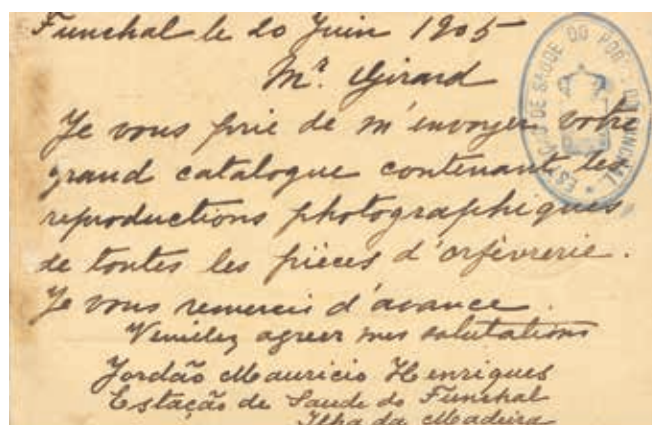 Funchal le 20 Juin 1905
Mr. Girard
Je vous prie de m'envoyer votre
grand catalogue contenant les
reproductions photographiques
de toutes les pièces d'orfèvrerie.
Je vous remercis d'avance.
Veuillez agreer mes salutations
Jordão Mauricio Henriques
Estação de Saude do Funchal
Ilha da Madeira
ESTAÇÃO DE SAUDE DO PORTO DO FUNCHAL